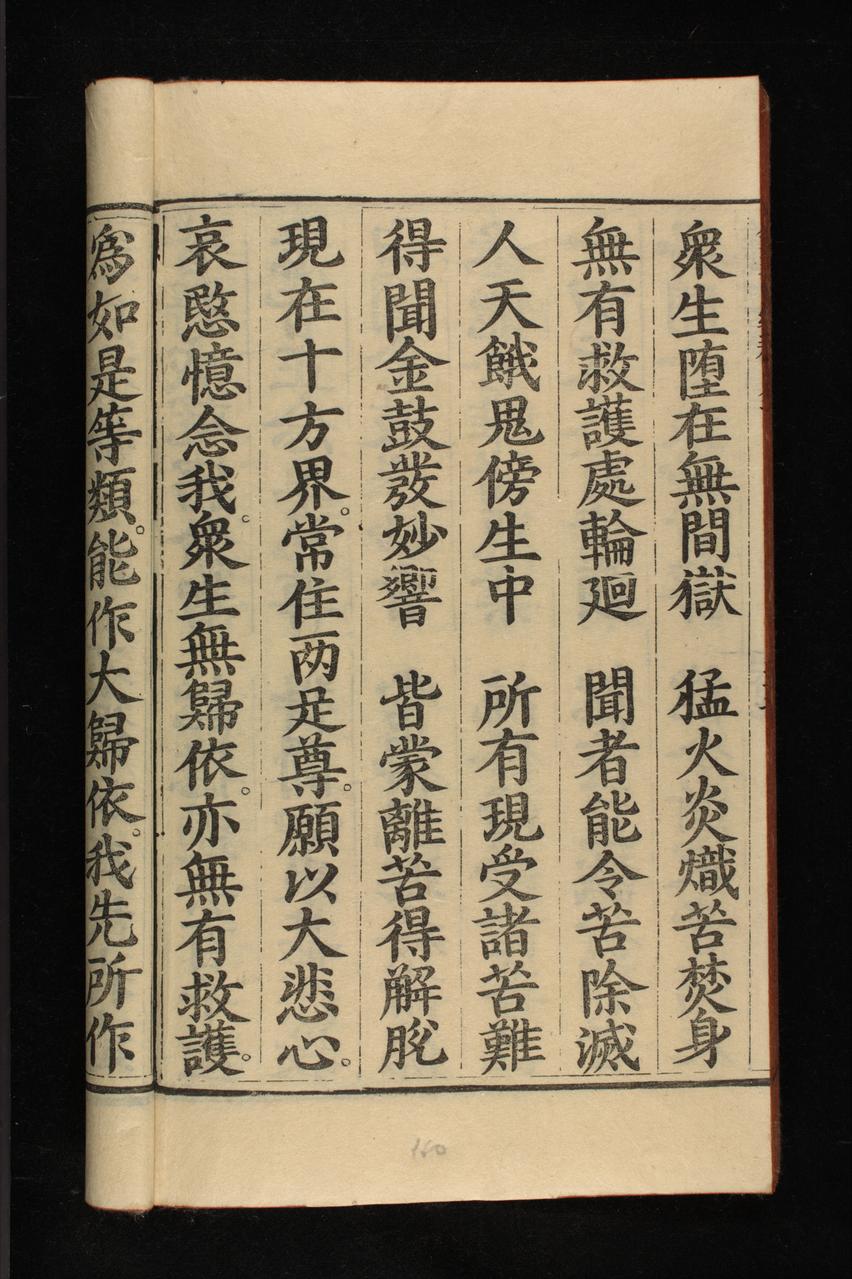 衆生堕在無間獄　猛火炎熾苦焚身
無有救護處輪廻　聞者能令苦除滅
人天餓鬼傍生中　所有現受諸苦難
得聞金鼓發妙響　皆蒙離苦得解脫
現在十方界。常住兩足尊。願以大悲心。
哀愍憶念我。衆生無歸依。亦無有救護。
為如是等類。能作大歸依。我先所作
150